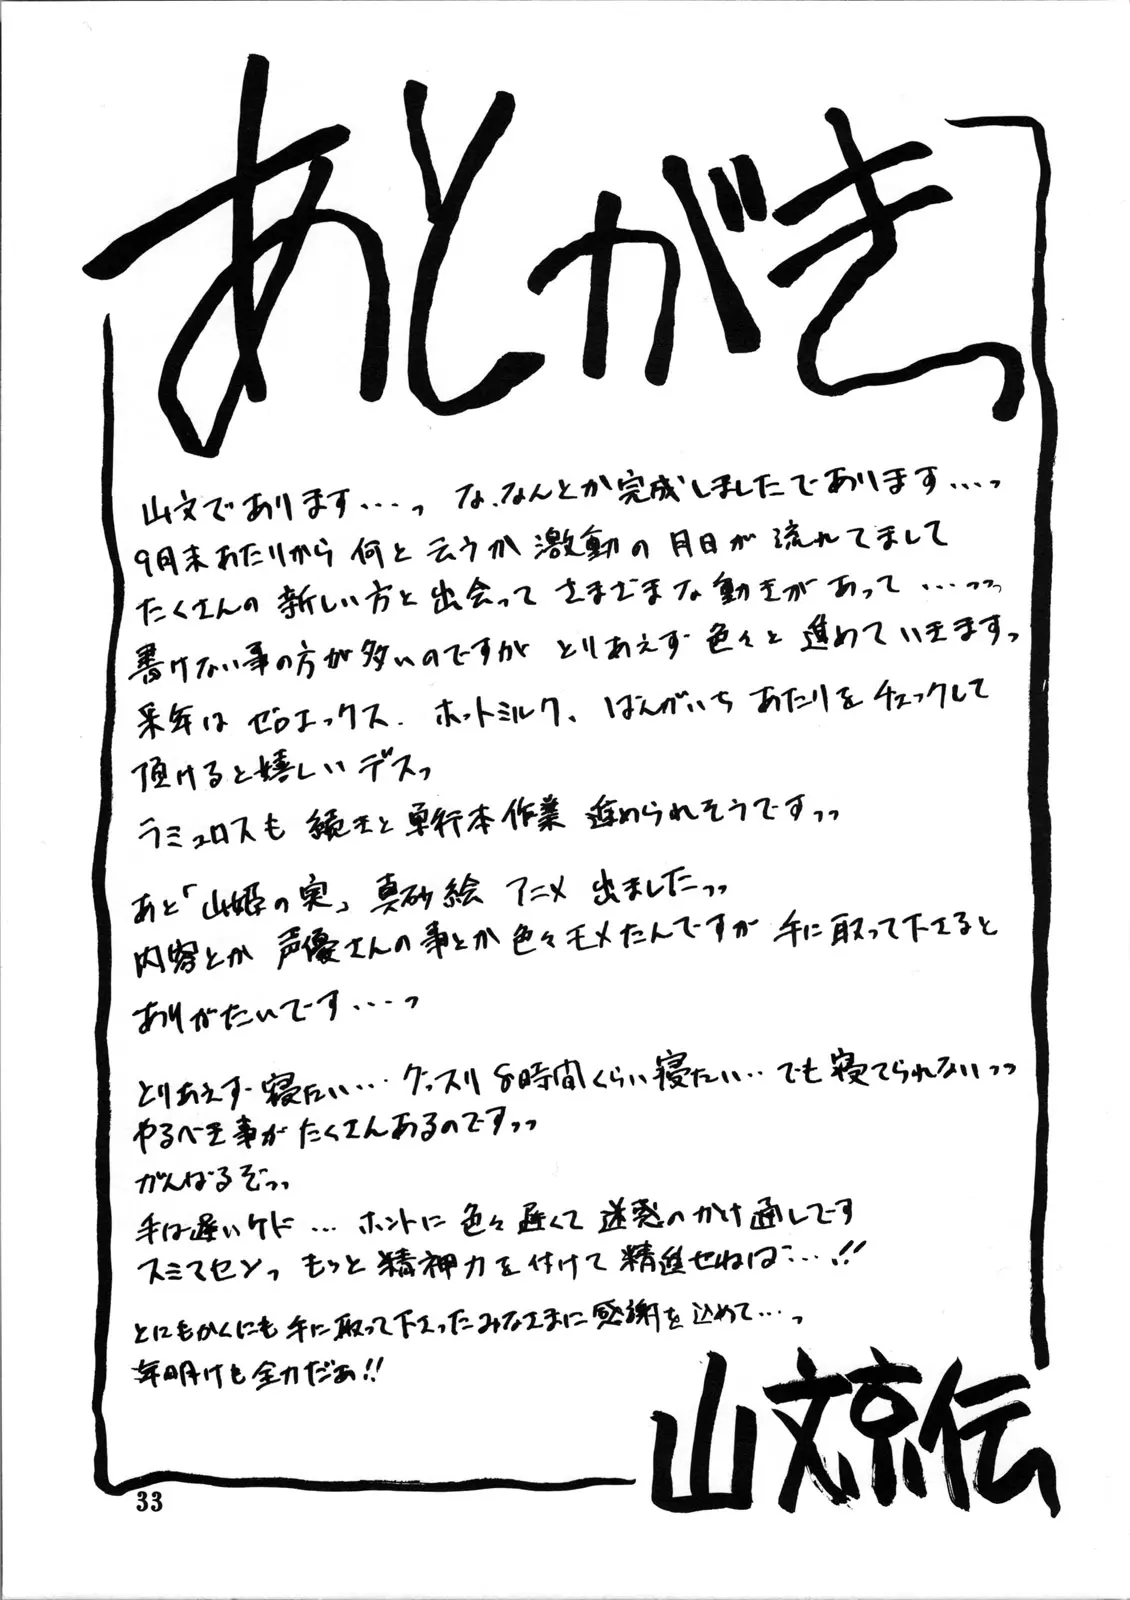 あとがきっ
山文であります・・・・っ な、なんとか完成しましたであります・・・・っ
9月末あたりから 何と云うか 激動の 月日が 流れてまして
たくさんの 新しい方と 出会って さまざまな動きがあって ・・・・っっっ
書けない事の方が多いのですが とりあえず 色々と 進めていきますっ
来年は ゼロエックス、ホットミルク、ばんがいち あたりを チェックして
頂けると嬉しい デスっ
ラミュロスも 続きと 単行本作業 進められそうですっっ
あと「山姫の実」真砂絵 アニメ 出ましたっっ
内容とか 声優さんの事とか 色々モメたんですが 手に取って下さると
ありがたいです・・・・っ
とりあえず 寝たい・・・ グッスリ 8時間くらい 寝たい・・・ でも 寝てられないっっ
やるべき事が たくさんあるのですっっ
がんばるぞっっ
手は遅いケド ・・・ ホントに 色々 遅くて 迷惑のかけ通しです
スミマセンっ もっと 精神力を付けて 精進せねば・・・・!!
とにもかくにも 手に取って下さったみなさまに 感謝を込めて・・・・っ
年明けも 全力だぁ!!
山文京伝
33